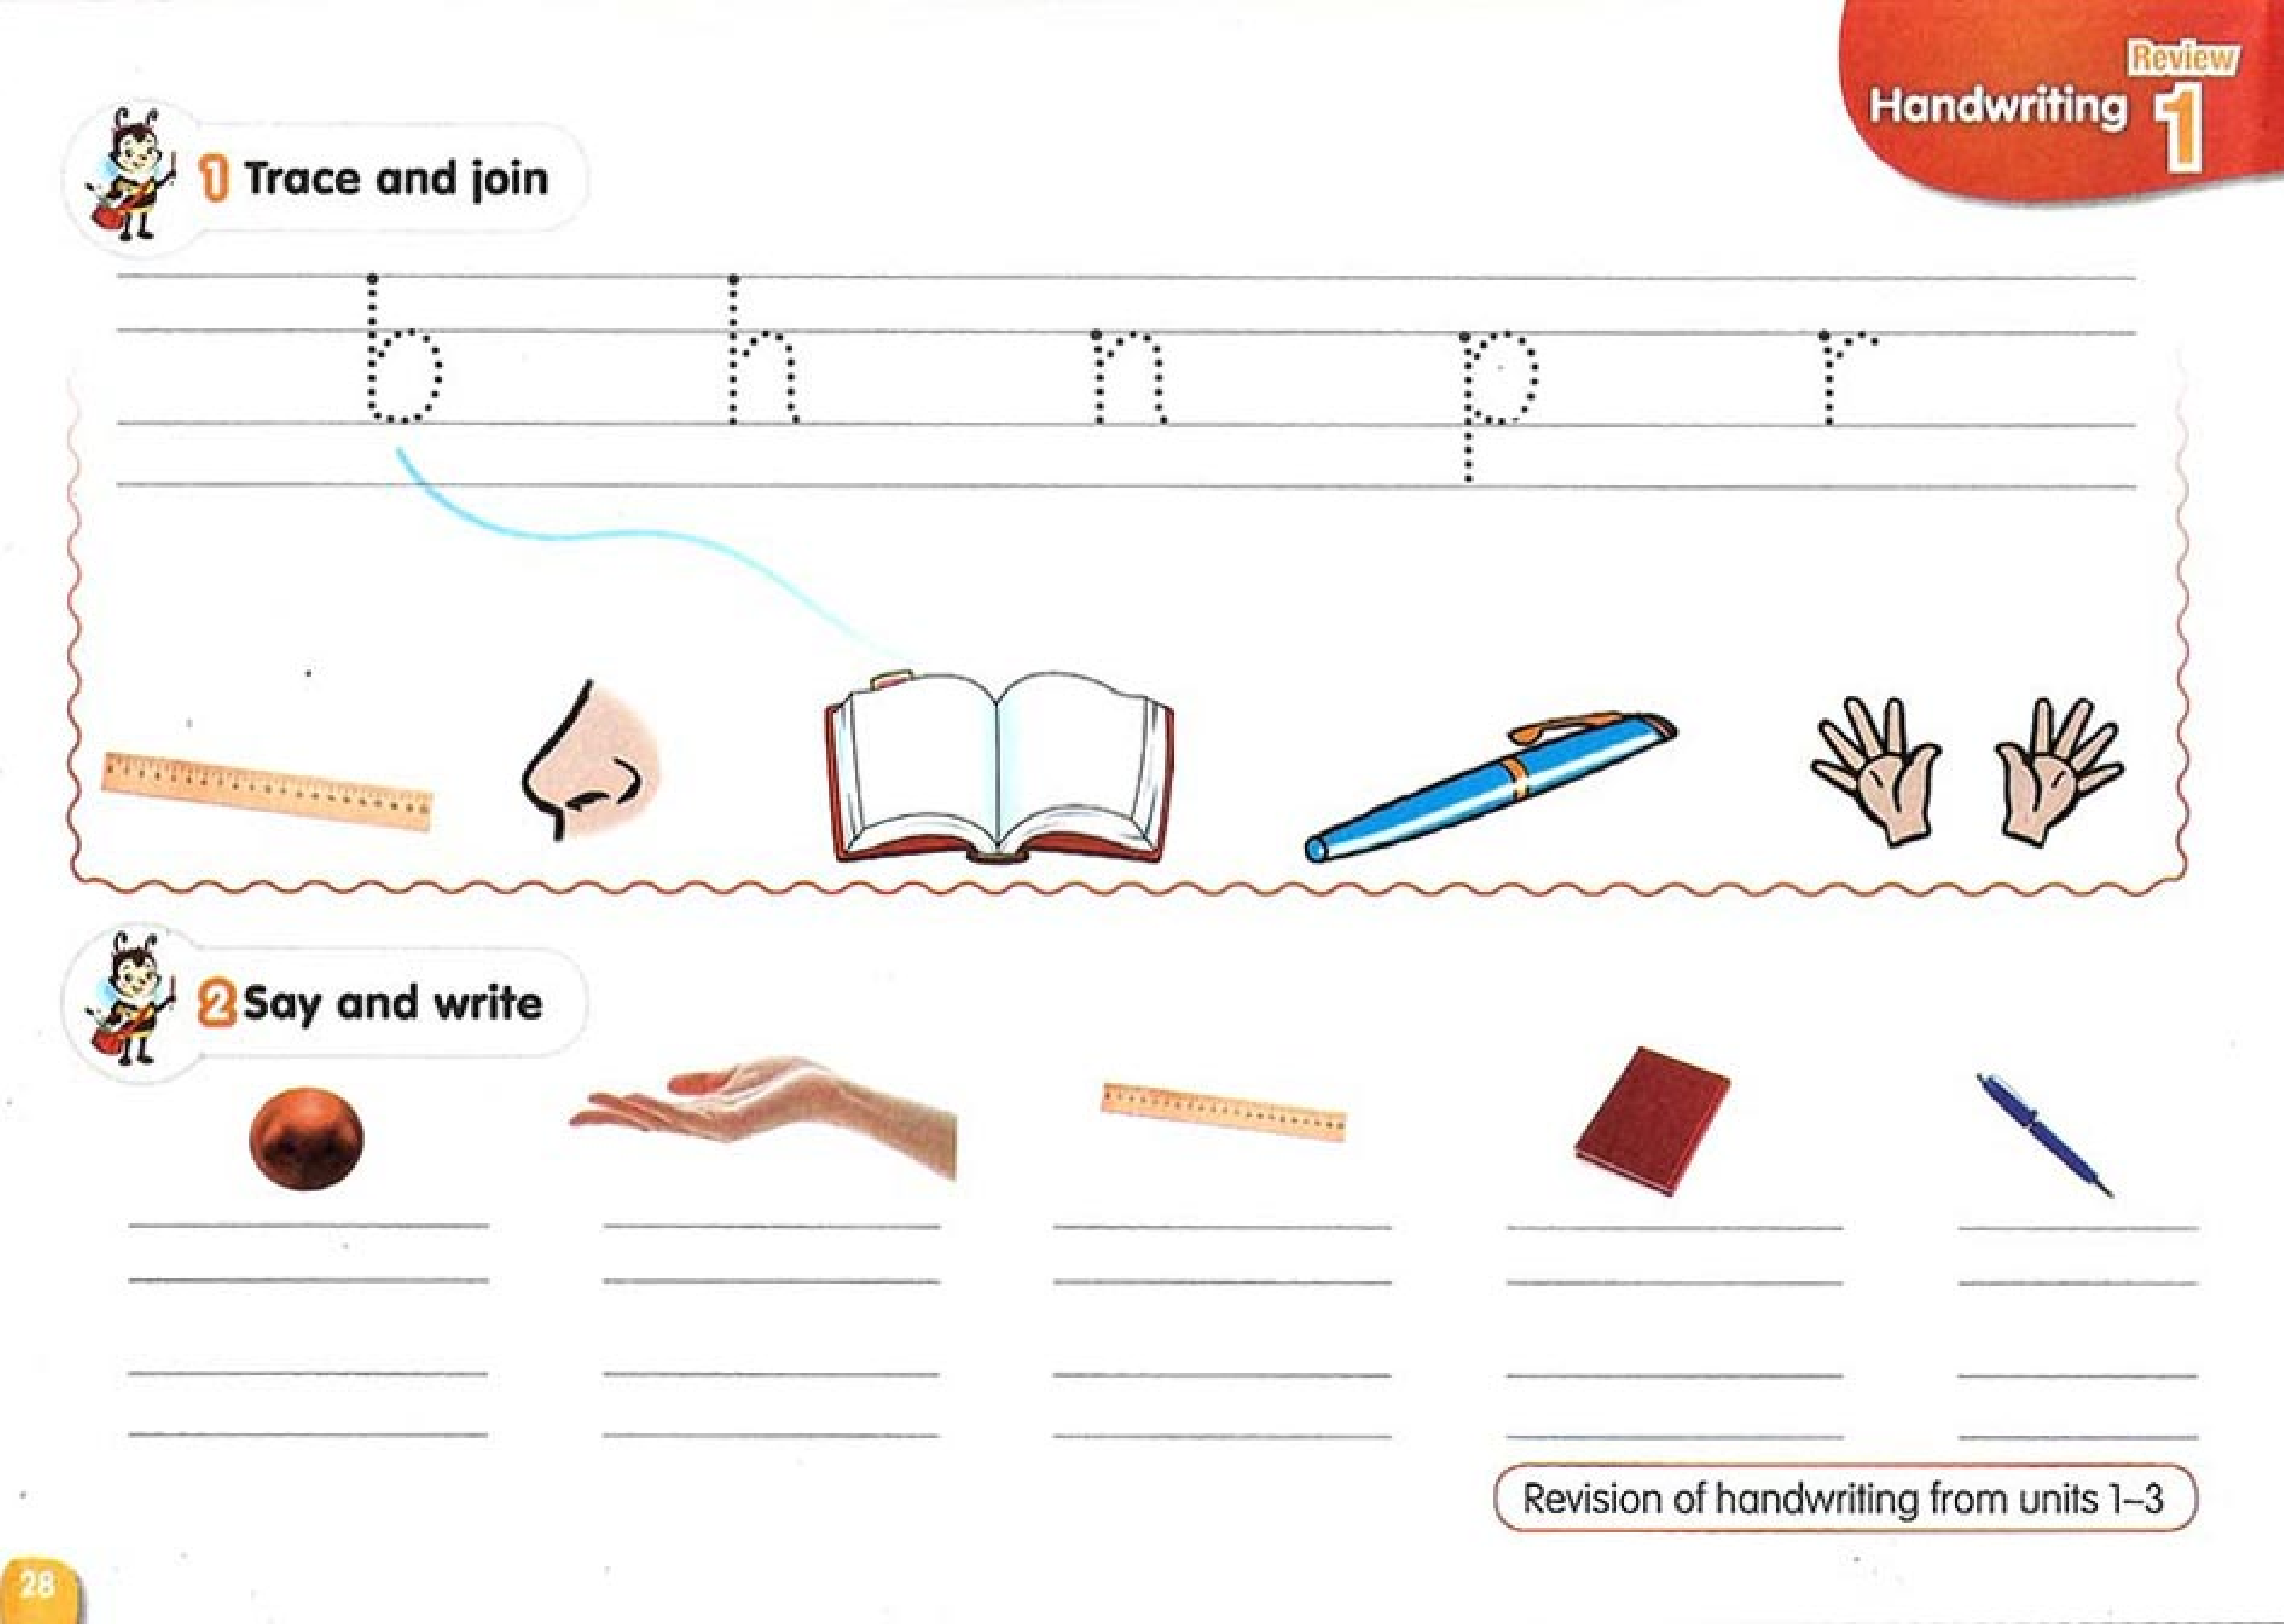 Review
Handwriting 1
1 Trace and join
b h n p r
2 Say and write
Revision of handwriting from units 1–3
28